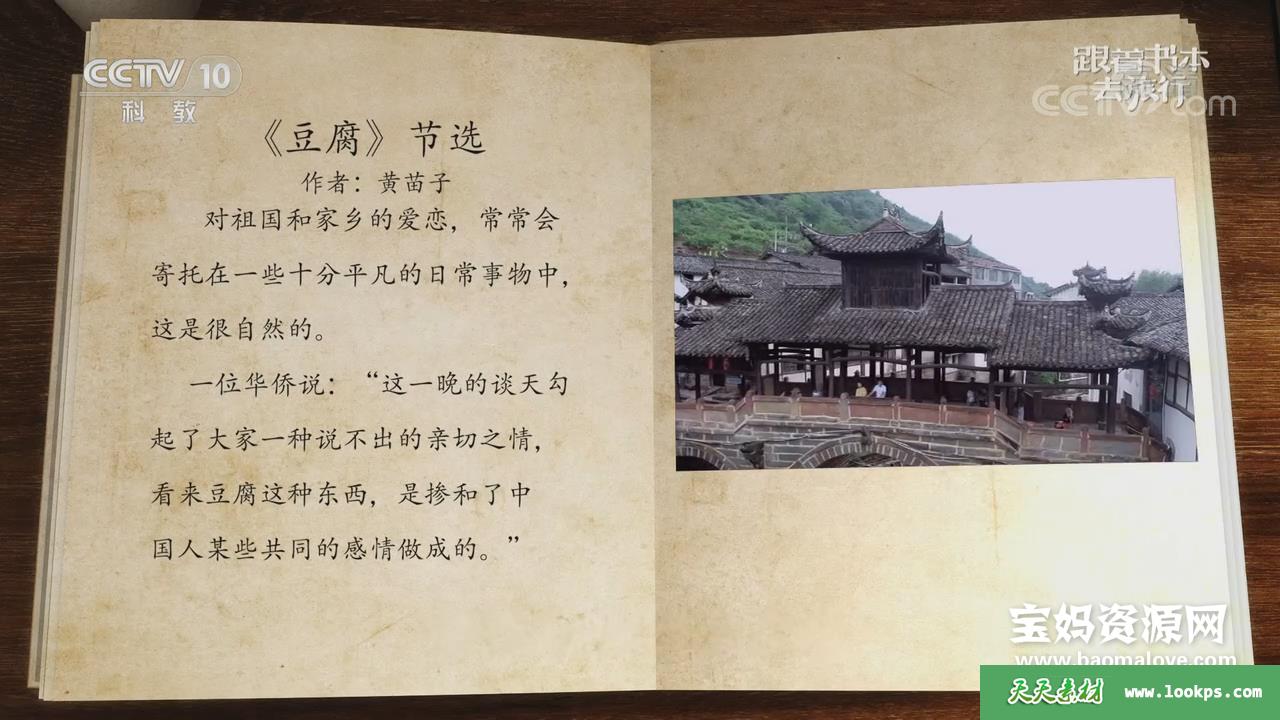 CCTV 10
科教
跟着书本
去旅行
CCTV.com
《豆腐》节选
作者：黄苗子
对祖国和家乡的爱恋，常常会
寄托在一些十分平凡的日常事物中，
这是很自然的。
一位华侨说：“这一晚的谈天勾
起了大家一种说不出的亲切之情，
看来豆腐这种东西，是掺和了中
国人某些共同的感情做成的。”
宝妈资源网
www.baomalove.com
天天素材 www.lookps.com